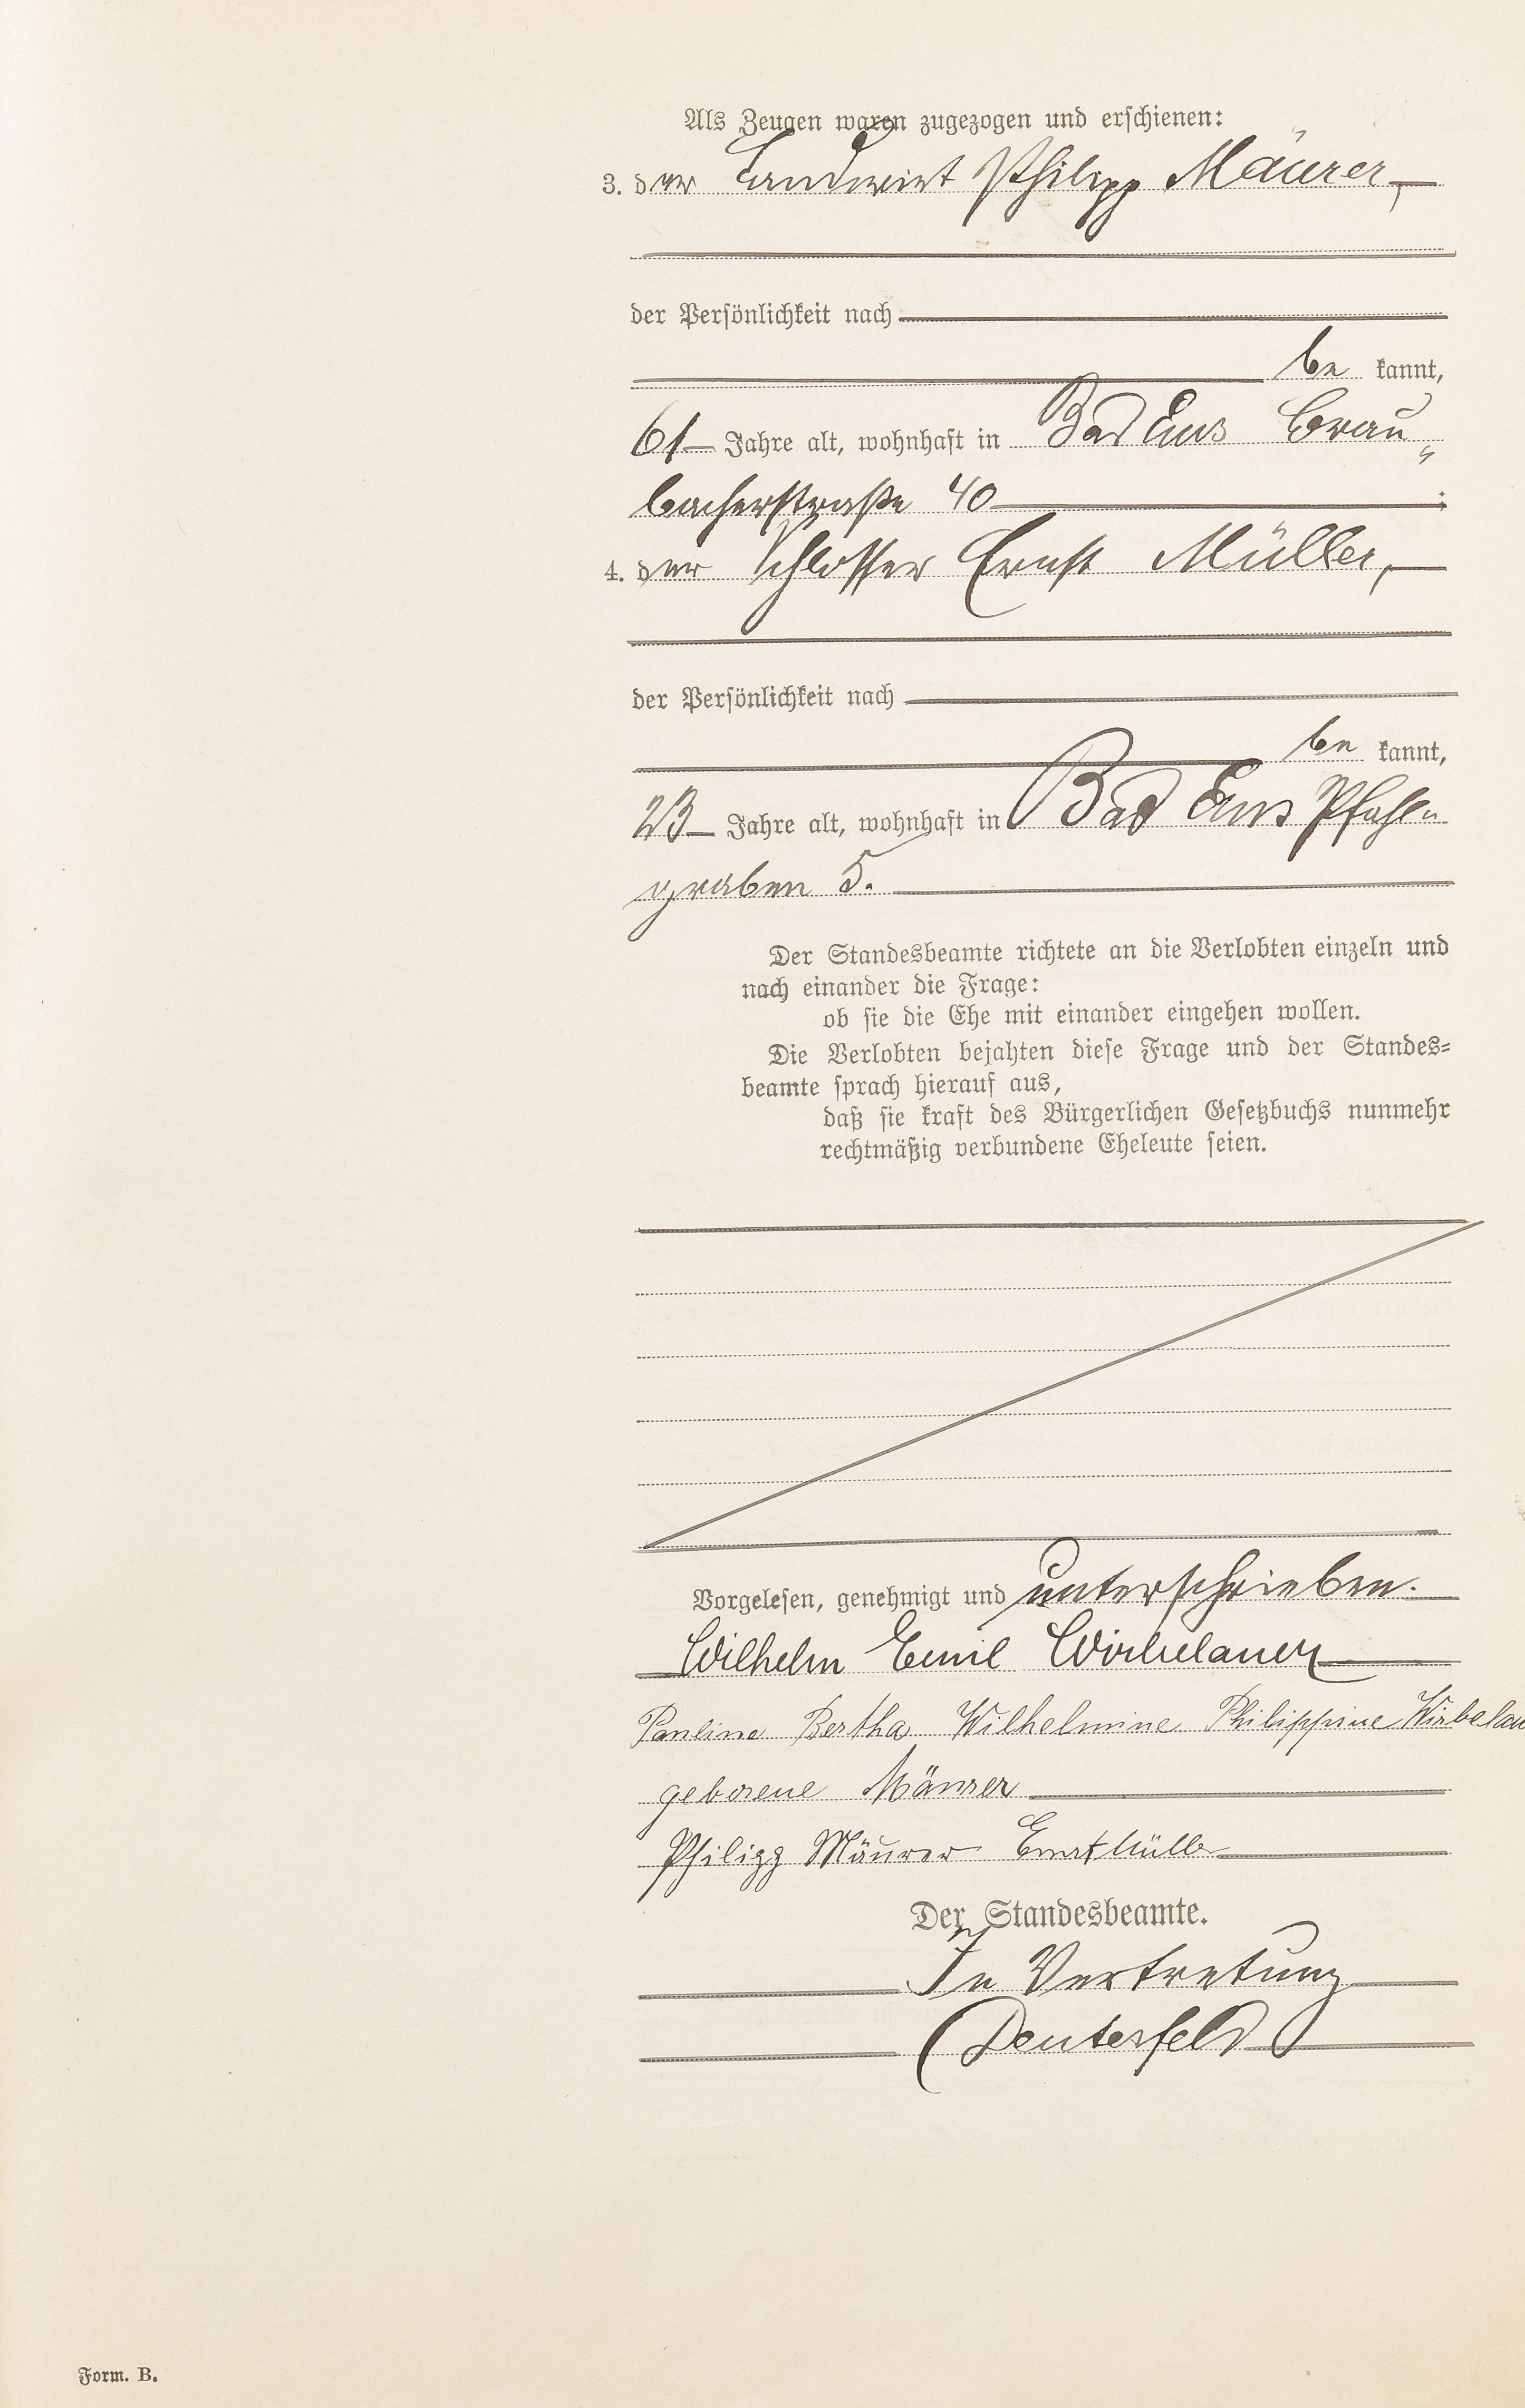 Als Zeugen waren zugezogen und erschienen:
3. der Landwirt Philipp Mäurer,
der Persönlichkeit nach
be kannt,
61 Jahre alt, wohnhaft in Bad Ems Brau„
bacherstraße 40 ;
4. der Schlosser Ernst Müller,
der Persönlichkeit nach
be kannt,
23 Jahre alt, wohnhaft in Bad Ems Pfahl„
graben 5.
Der Standesbeamte richtete an die Verlobten einzeln und
nach einander die Frage:
ob sie die Ehe mit einander eingehen wollen.
Die Verlobten bejahten diese Frage und der Standes=
beamte sprach hierauf aus,
daß sie kraft des Bürgerlichen Gesetzbuchs nunmehr
rechtmäßig verbundene Eheleute seien.
Vorgelesen, genehmigt und unterschrieben.
Wilhelm Emil Wirbelauer
Pauline Bertha Wilhelmine Philippine Wirbelau
geborene Mäurer
Philipp Mäurer Ernst Müller
Der Standesbeamte.
In Vertretung
Deutesfeld
Form. B.